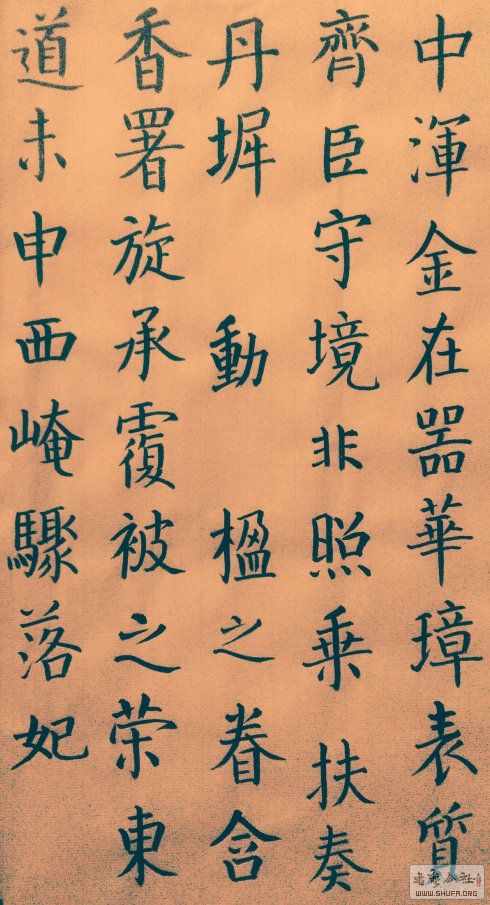 中渾金在器華璋表質
齊臣守境非照乗扶奏
丹墀動楹之眷含
香署旋承覆被之荣東
道未申西崦驟落妃
WWW.SHUFA.ORG